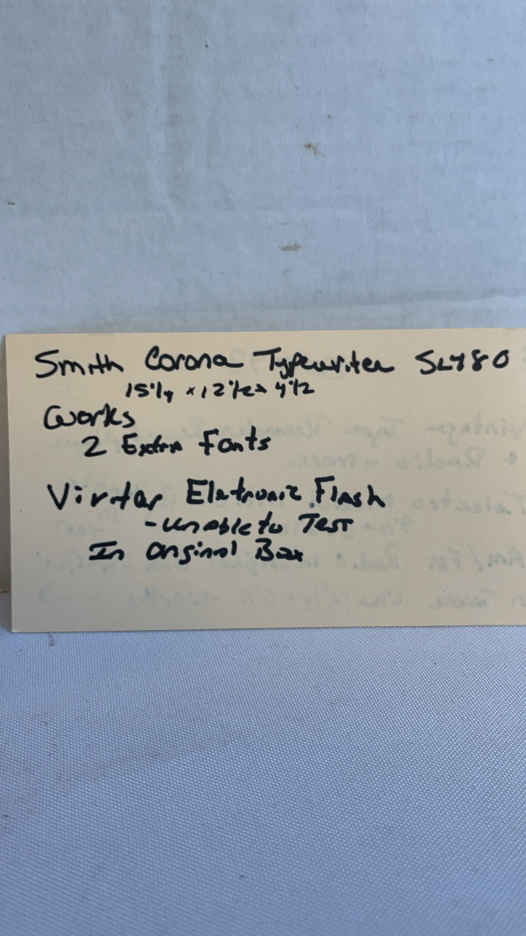 Smith Corona Typewriter SL480
15 1/4 x 12 1/2 x 4 1/2
Works
2 Extra Fonts
Virtar Eletronic Flash
- unable to Test
In Original Box